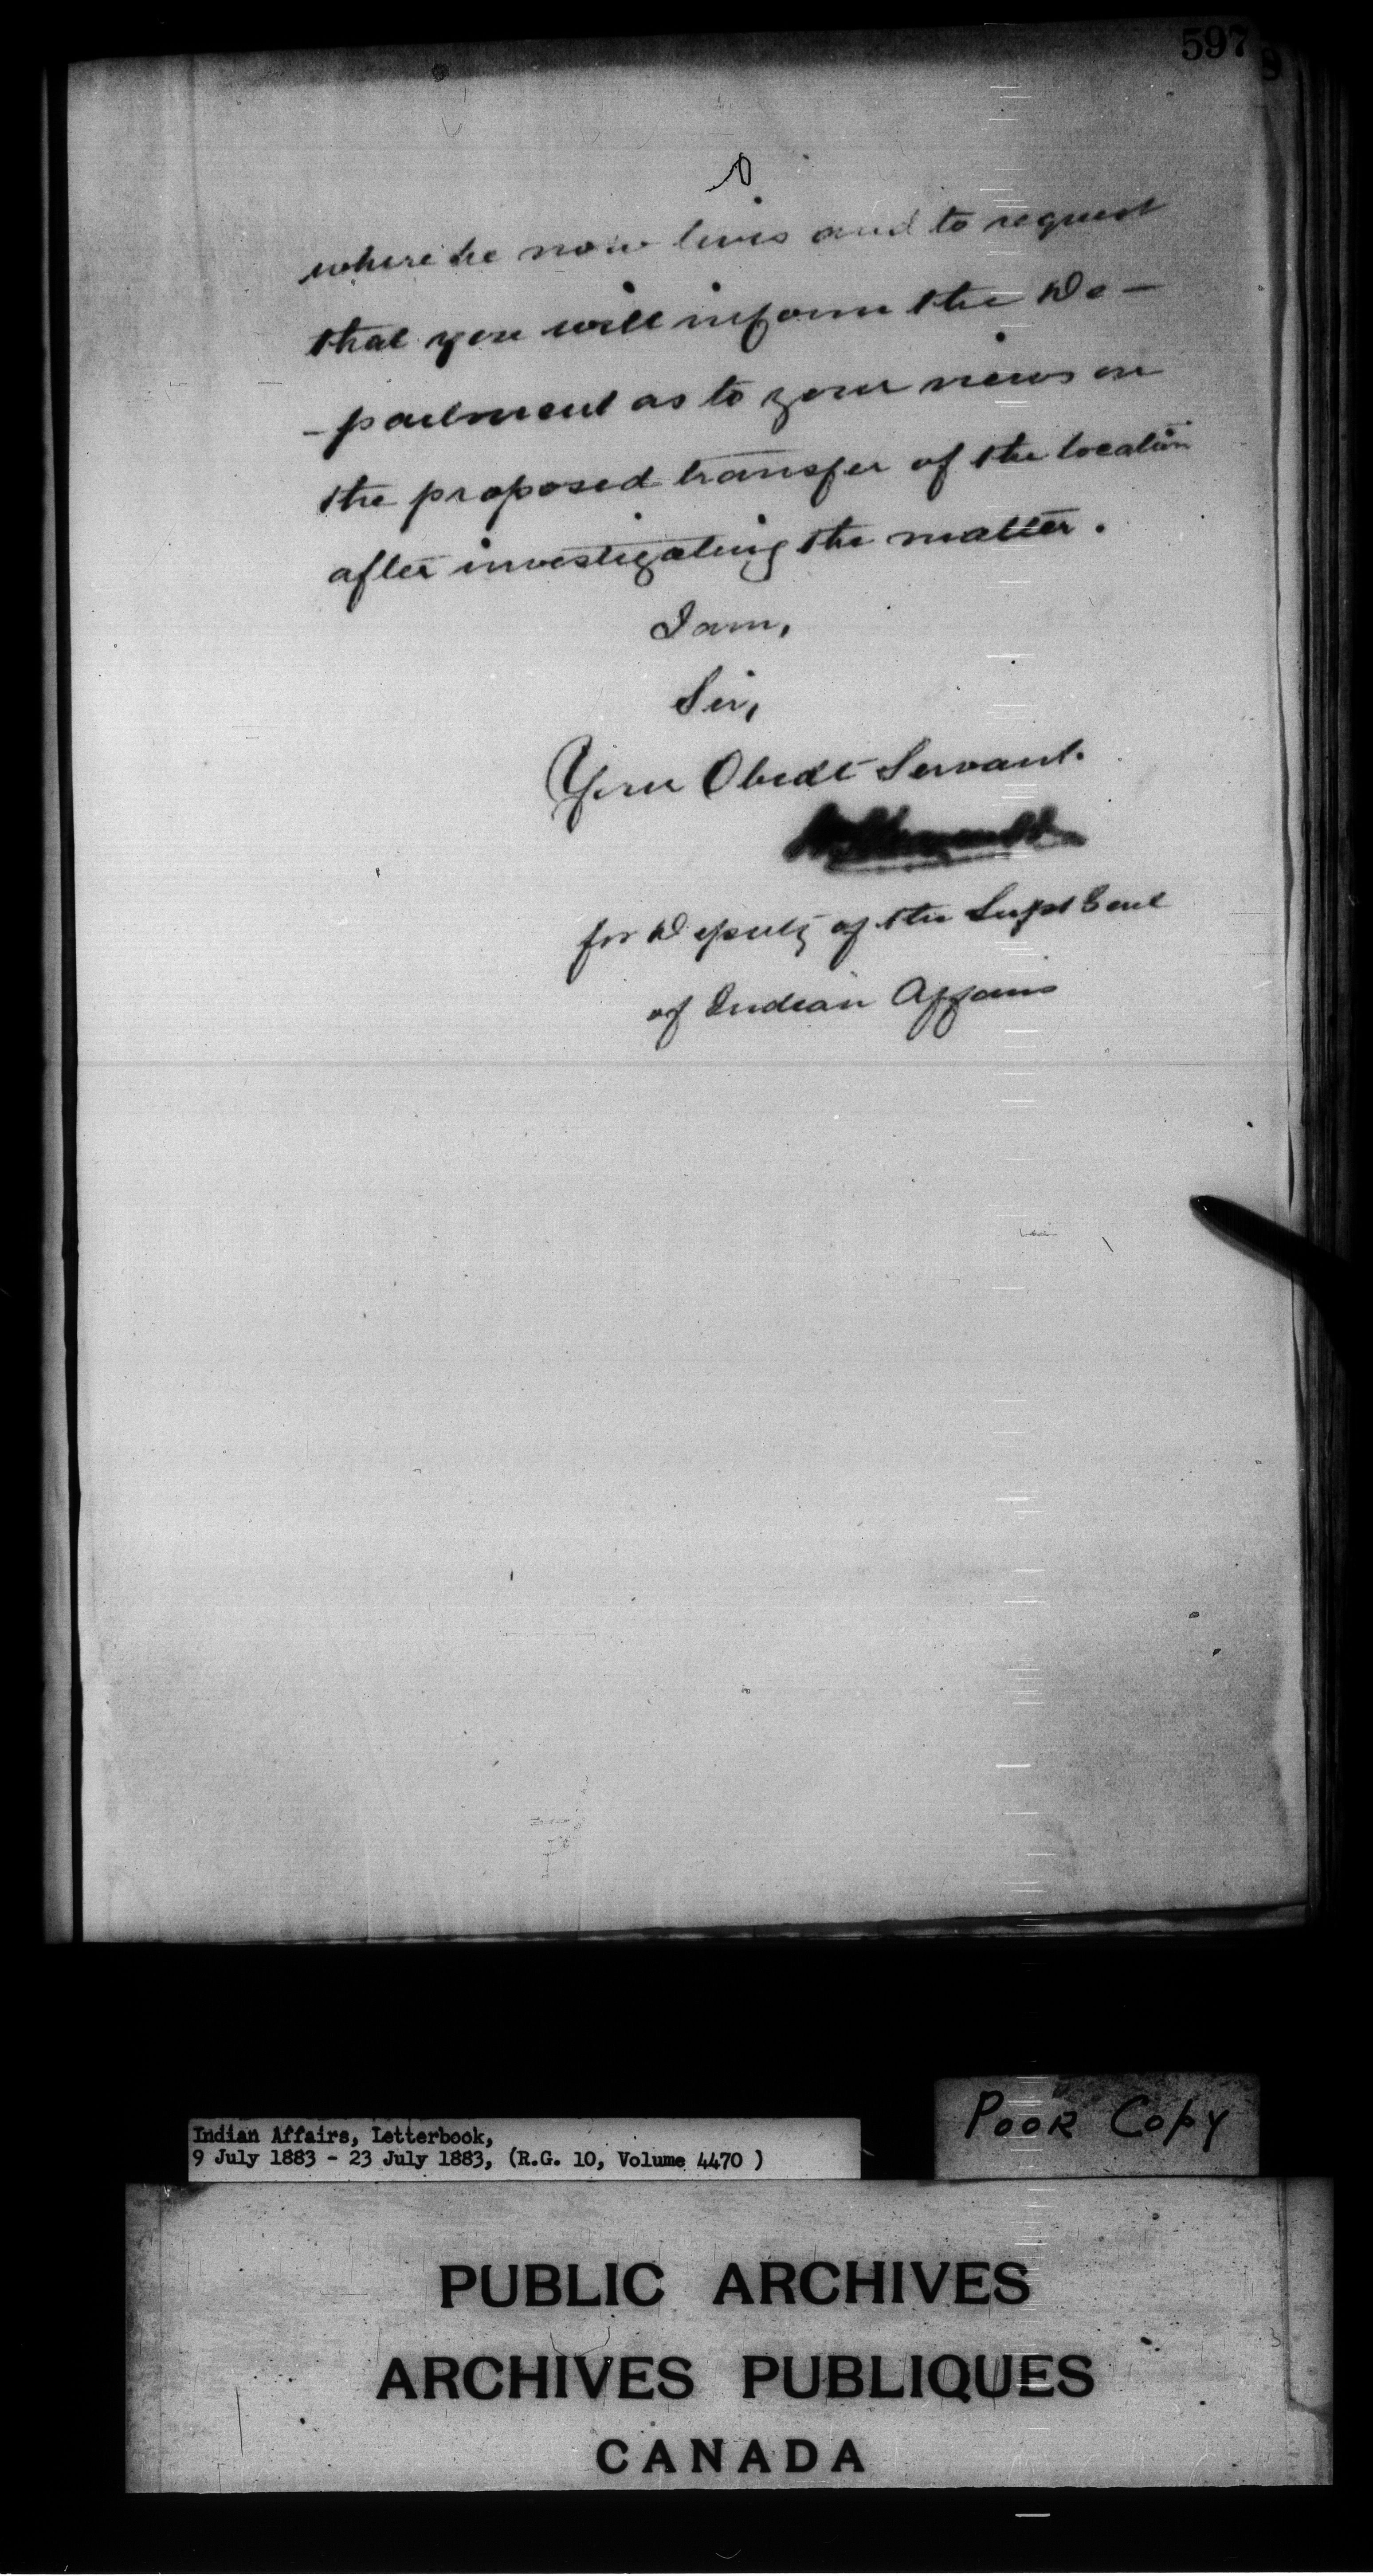 597
where he now lives and to request
that you will inform the De-
-partment as to your views on
the proposed transfer of the location
after investigating the matter.
I am,
Sir,
Your Obedt Servant.
for Deputy of the Supt Genl
of Indian Affairs
Poor Copy
Indian Affairs, Letterbook,
9 July 1883 - 23 July 1883, (R.G. 10, Volume 4470 )
PUBLIC ARCHIVES
ARCHIVES PUBLIQUES
CANADA